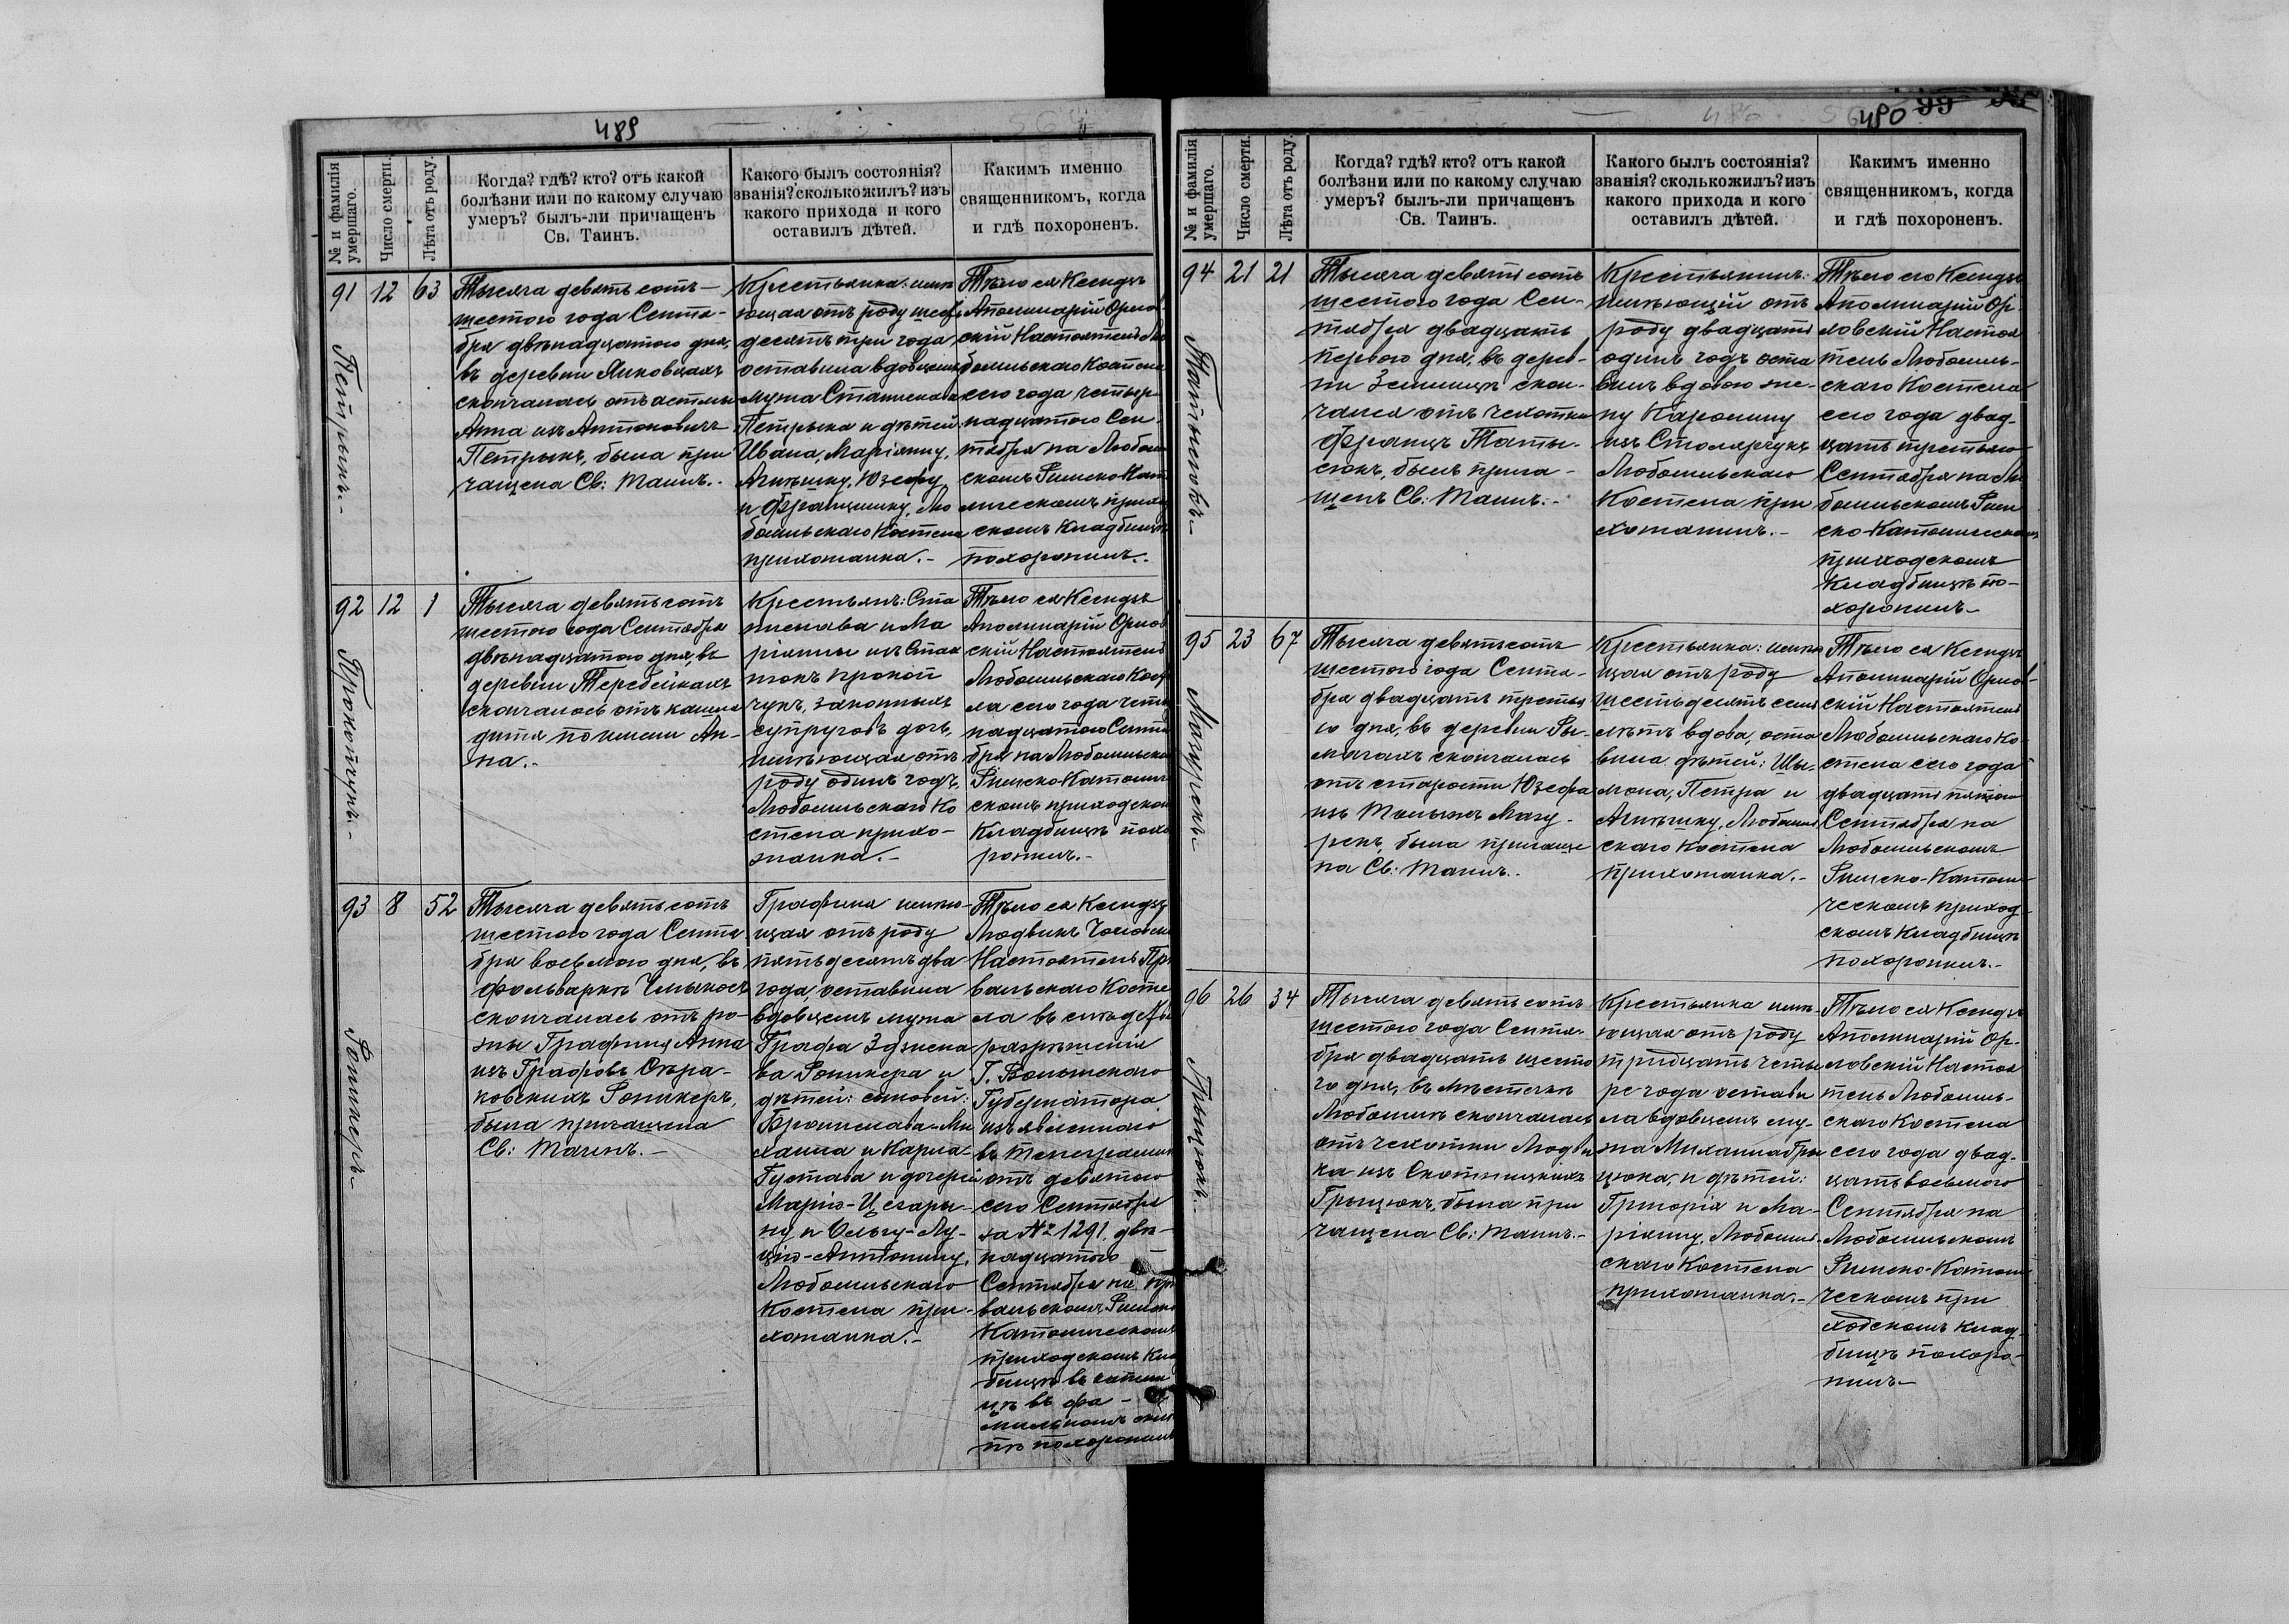 489
№ и фамилія умершаго.
Число смерти.
Лѣта отъ роду.
Когда? гдѣ? кто? отъ какой
болѣзни или по какому случаю
умеръ? былъ-ли причащенъ
Св. Таинъ.
Какого былъ состоянія?
званія? сколько жилъ? изъ
какого прихода и кого
оставилъ дѣтей.
Какимъ именно
священникомъ, когда
и гдѣ похороненъ.
91 12 63
Петрыкъ.-
Тысяча девятьсотъ-
шестого года Сентя-
бря двѣнадцатого дня,
въ деревни Янковцахъ
скончалась отъ астмы
Анна изъ Антоновичъ
Петрыкъ, была при
чащена Св: Таинъ.-
Крестьянка: имѣ
ющая отъ роду шест
десятъ три года,
оставила вдовцемъ
мужа Станислава
Петрыка и дѣтей:
Ивана, Маріянну,
Агнѣшку, Юзефу
и Францишку, Лю
бомльскаго Костела
прихожанка.-
Тѣло ея Ксендзъ
Аполинарій Орлов-
скій Настоятель Лю
бомльскаго Костела
сего года четыр
надцатого Сен-
тября на Любом
скомъ Римско-Кат
лическомъ приход
скомъ Кладбищѣ
похоронилъ.-
92 12 1
Прокопчукъ.-
Тысяча девятьсотъ
шестого года Сентября
двѣнадцатого дня, въ
деревни Теребейкахъ
скончалось отъ кашля
дитя по имени Ан-
на.-
Крестьянъ: Ста
нислава и Ма
ріянны изъ
Прокоп
чукъ, законныхъ
супруговъ дочь,
имѣющая отъ
роду одинъ годъ,
Любомльскаго Ко
стела прихо-
жанка.-
Тѣло ея Ксендзъ
Аполинарій Орлов
скій Настоятель
Любомльскаго Кост
ла сего года четы
надцатого Сентя
бря на Любомльском
Римско-Католич
скомъ приходском
Кладбищѣ похо
ронилъ.-
93 8 52
Роникеръ
Тысяча девятьсотъ
шестого года Сентя
бря восьмого дня, въ
фольваркѣ
скончалась отъ ро-
жи Графиня Анна
изъ Графовъ Скра-
ковскихъ Роникеръ,
была причащена
Св: Таинъ.-
Графиня имѣю-
щая отъ роду
пятьдесятъ два
года, оставила
вдовцемъ мужа
Графа Здзисла
ва Роникера и
дѣтей: сыновей:
Бронислава-Ми
хаила и Карла-
Густава и дочерей
Марію-Цезары-
ну и Ольгу-Лу-
цію-Антонину,
Любомльскаго
Костела при-
хожанка.-
Тѣло ея Ксендзъ
Людвикъ
Настоятель Пры
вальскаго Косте
ла въ слѣдствіи
разрѣшенія
Г. Волынскаго
Губернатора
изъявленнаго
въ телеграмѣ
отъ девятого
сего Сентября
за № 1291 двѣ-
надцатого
Сентября на Пры
вальскомъ Римско
Католическомъ
приходскомъ Клад
бищѣ въ каплы
цѣ въ фа-
мильномъ скле
пѣ похоронилъ
490 99
№ и фамилія умершаго.
Число смерти.
Лѣта отъ роду.
Когда? гдѣ? кто? отъ какой
болѣзни или по какому случаю
умеръ? былъ-ли причащенъ
Св. Таинъ.
Какого былъ состоянія?
званія? сколько жилъ? изъ
какого прихода и кого
оставилъ дѣтей.
Какимъ именно
священникомъ, когда
и гдѣ похороненъ.
94 21 21
Татысюкъ-
Тысяча девятьсотъ
шестого года Сен-
тября двадцать
перваго дня, въ дерев-
ни Землицѣ скон-
чался отъ чахотки
Францъ Таты-
сюкъ, былъ прича-
щенъ Св: Таинъ.-
Крестьянинъ:
имѣющій отъ
роду двадцать
одинъ годъ оста
вилъ вдовою же-
ну Каролину
изъ Столярчукъ
Любомльскаго
Костела при
хожанинъ.-
Тѣло его Ксендзъ
Аполинарій Ор-
ловскій Настоя
тель Любомль-
скаго Костела
сего года двад-
цать третьяго
Сентября на Лю
бомльскомъ Рим
ско-Католическомъ
приходскомъ
Кладбищѣ по-
хоронилъ.-
95 23 67
Мазурекъ
Тысяча девятьсотъ
шестого года Сентя-
бря двадцать третья
го дня, въ деревни Ры-
мачахъ скончалась
отъ старости Юзефа
изъ Мазу-
рекъ, была причаще
на Св: Таинъ.-
Крестьянка: имѣю
щая отъ роду
шестьдесятъ семь
лѣтъ вдова, оста
вила дѣтей: Шы-
мона, Петра и
Агнѣшку, Любомль
скаго Костела
прихожанка.-
Тѣло ея Ксендзъ
Аполинарій Орлов-
скій Настоятель
Любомльскаго Ко-
стела сего года
двадцать пятого
Сентября на
Любомльскомъ
Римско-Католи
ческомъ приход
скомъ Кладбищѣ
похоронилъ.-
96 26 34
Грыцюкъ.
Тысяча девятьсотъ
шестого года Сентя-
бря двадцать шесто
го дня, въ мѣстечкѣ
Любомлѣ скончалась
отъ чахотки Людви
ка изъ Скотницкихъ
Грыцюкъ, была при
чащена Св: Таинъ.-
Крестьянка имѣ-
ющая отъ роду
тридцать четы
ре года остави
ла вдовцемъ му-
жа Михаила Гры
цюка, и дѣтей:
Григорія и Ма-
ріянну, Любомль-
скаго Костела
прихожанка.-
Тѣло ея Ксендзъ
Аполинарій Ор-
ловскій Настоя
тель Любомль-
скаго Костела
сего года двад-
цать восьмого
Сентября на
Любомльскомъ
Римско-Католи
ческомъ при
ходскомъ Клад-
бищѣ похоро-
нилъ.-